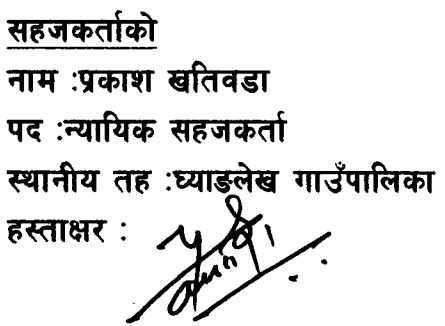 सहजकर्ताको
नाम :प्रकाश खतिवडा
पद :न्यायिक सहजकर्ता
स्थानीय तह :घ्याङलेख गाउँपालिका
हस्ताक्षर :